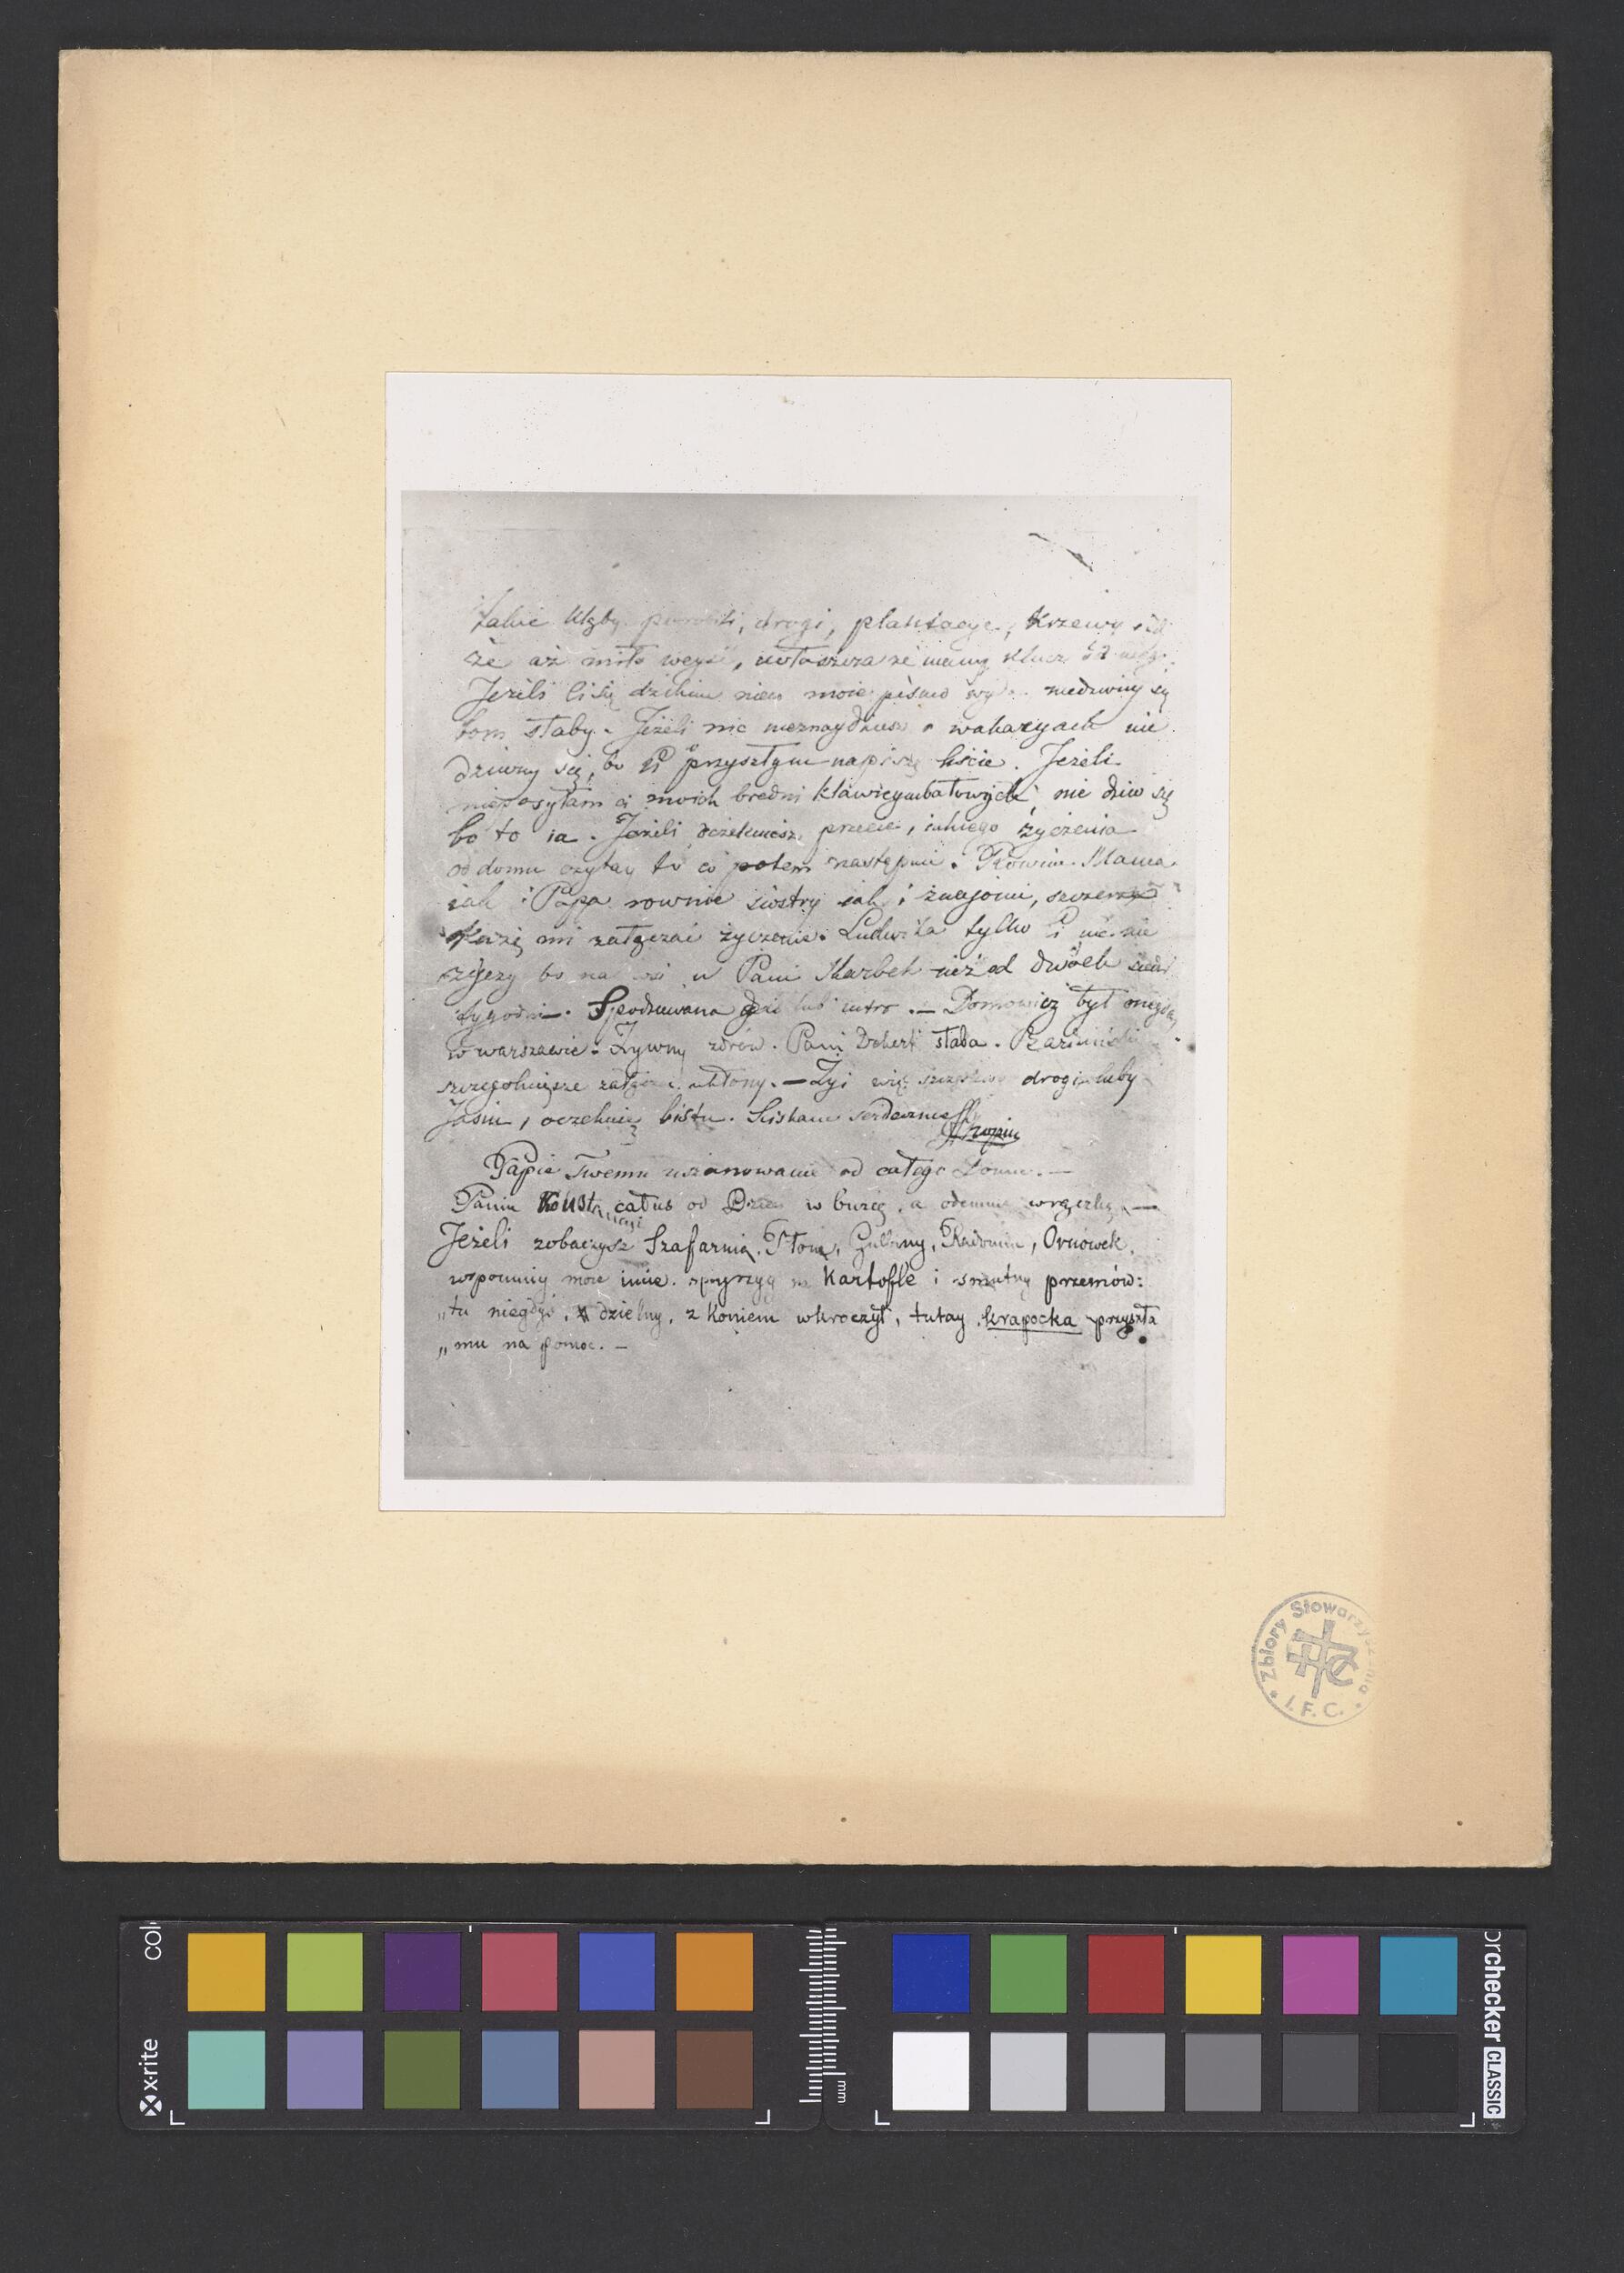 takie kląby porobili, drogi, plantacye, krzewy
że aż miło weyść, zwłaszcza że mamy klucz
Jeżeli ci się dzikim moie pismo niedziwuy się
bom słaby. Jeżeli nic nieznaydziesz o wakacyach nie
dziwuy się, bo w przyszłym napiszę liście. Jeżeli
nieposyłam ci moich bredni klawicymbałowych, nie dziw się
bo to ia. Jeżeli oczekuiesz przecie, iakiego życzenia
od domu czytay to co potem nastąpi. Równie Mama
iak i Papa rownie siostry iak i znajomi, szczerze
każą mi załączać życzenia. Ludwika tylko
bo na wsi u Pani Skarbek już od dwóch
tygodni. Spodziewana dziś lub iutro. — Domowicz był onegday
w Warszawie. Żywny zdrów. Pani Dekert słaba. Bardziński
szczegolnieysze załącza ukłony. — Żyi więc szczęśliwy drogi luby
Jasiu, oczekuię listu. Sciskam serdecznie
FChopin
Papie Twemu uszanowanie od całego Domu. —
Pannie Konstancyi całus od Dzieci w buzię, a odemnie w rączkę. —
Jeżeli zobaczysz Szafarnią, Płonę, Gulbiny, Radomin, Ornówek,
wspomniy moie imie. spoyrzyy na Kartofle i smutny przemów:
„tu niegdyś, dzielny, z koniem wkroczył, tutay krapocka przyszła
„mu na pomoc. —
Zbiory Stowarzyszenia I. F. C.
x·rite
mm
checker CLASSIC